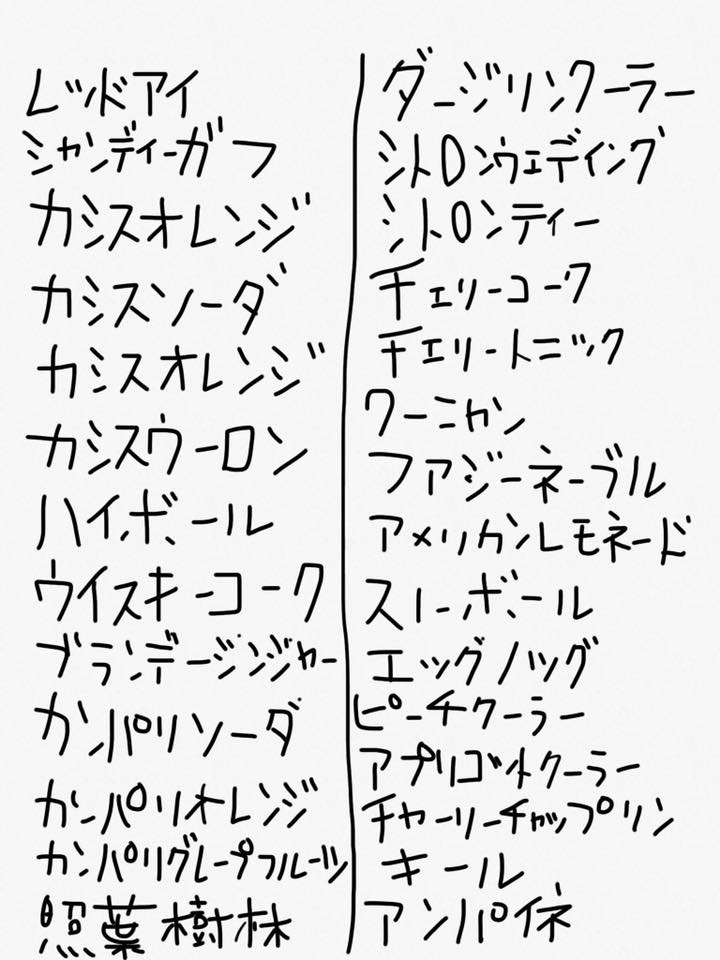 レッドアイ
シャンディーガフ
カシスオレンジ
カシスソーダ
カシスオレンジ
カシスウーロン
ハイボール
ウイスキーコーク
ブランデージンジャー
カンパリソーダ
カンパリオレンジ
カンパリグレープフルーツ
照葉樹林
ダージリンクーラー
シトロンウェディング
シトロンティー
チェリーコーク
チェリートニック
クーニャン
ファジーネーブル
アメリカンレモネード
スノーボール
エッグノッグ
ピーチクーラー
アプリコットクーラー
チャーリーチャップリン
キール